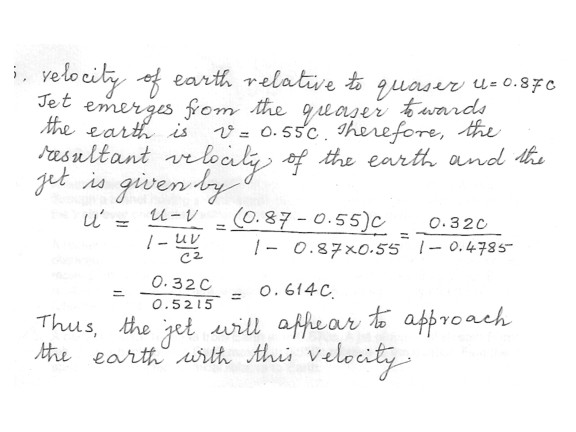 5. velocity of earth relative to quaser u=0.87c
Jet emerges from the queaser towards
the earth is v = 0.55c. Therefore, the
resultant velocity of the earth and the
jet is given by
u' = u-v / 1 - uv/c2 = (0.87 - 0.55)c / 1 - 0.87x0.55 = 0.32c / 1 - 0.4785
= 0.32c / 0.5215 = 0.614c.
Thus, the jet will appear to approach
the earth with this velocity.